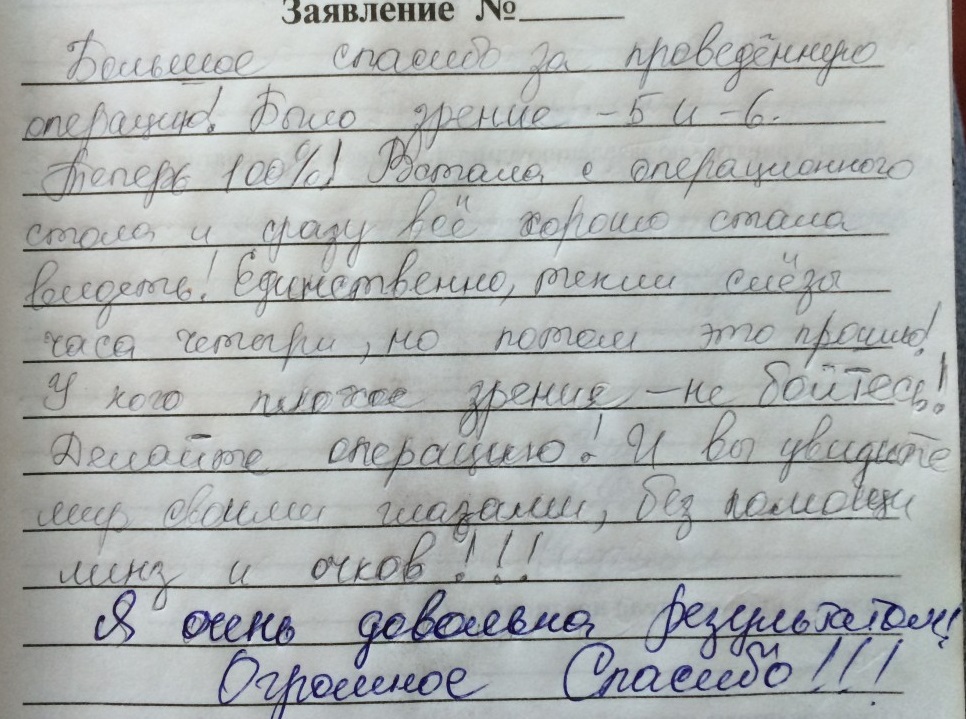 Заявление №
Большое спасибо за проведённую
операцию! Было зрение -5 и -6.
Теперь 100%! Встала с операционного
стола и сразу всё хорошо стала
видеть! Единственно, текли слёзы
часа четыри, но потом это прошло!
У кого плохое зрение - не бойтесь!
Делайте операцию! И вы увидите
мир своими глазами, без помощи
линз и очков!!!
Я очень довольна результатом!
Огромное Спасибо!!!